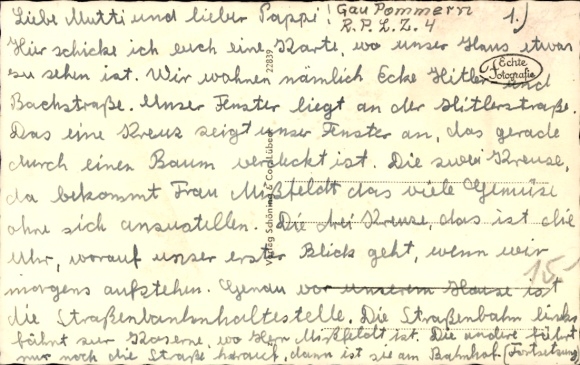 Liebe Mutti und lieber Pappi! Gau Pommern 1.)
R.P.L.Z. 4
Hier schicke ich euch eine Karte, wo unser Haus etwas
zu sehen ist. Wir wohnen nämlich Ecke Hitler- und
Echte
Fotografie
Bachstraße. Unser Fenster liegt an der Hitlerstraße.
Das eine Kreuz zeigt unser Fenster an, das gerade
durch einen Baum verdeckt ist. Die zwei Kreuze,
da bekommt Frau Mißfeldt das viele Gemüse
ohne sich anzustellen. Die drei Kreuze, das ist die
Uhr, worauf unser erster Blick geht, wenn wir
morgens aufstehen. Genau vor unserem Hause ist
die Straßenbahnhaltestelle. Die Straßenbahn links
fährt zur Kaserne, wo Herr Mißfeldt ist. Die andere fährt
nur noch die Straße herauf, dann ist sie am Bahnhof. (Fortsetzung)
15.-
22839
Verlag Schöning & Co., Lübeck